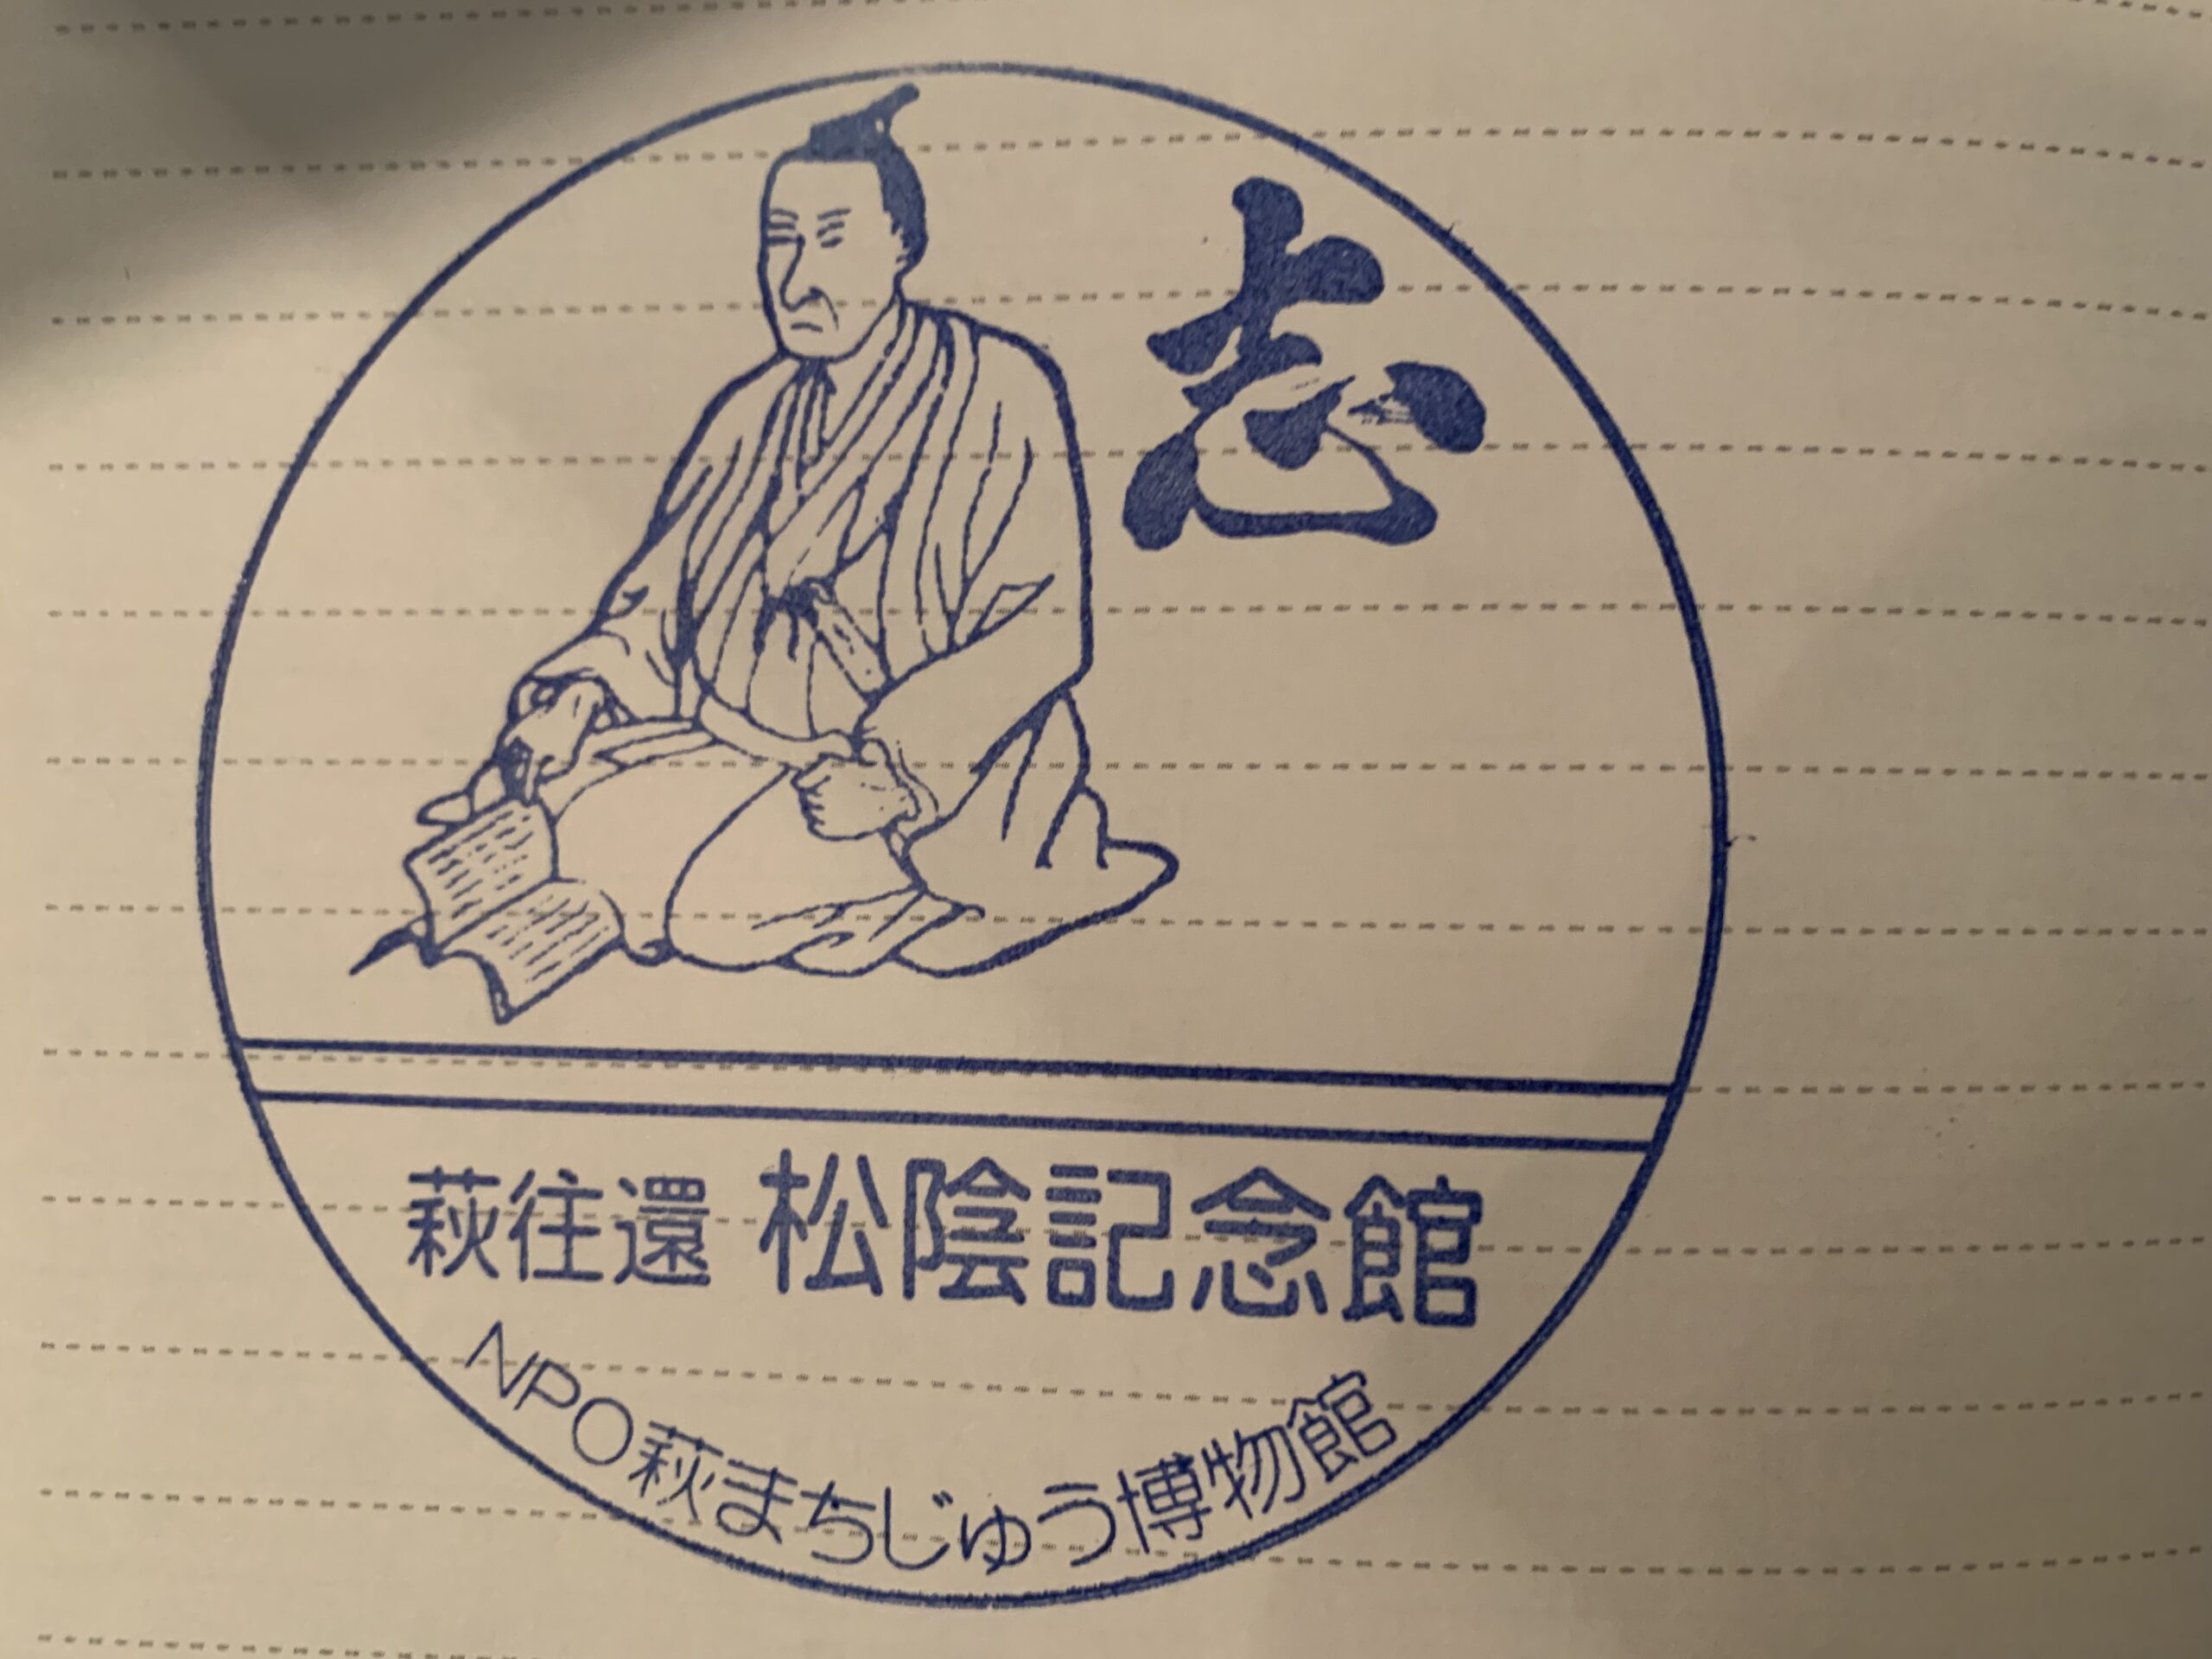 志
萩往還 松陰記念館
NPO萩まちじゅう博物館